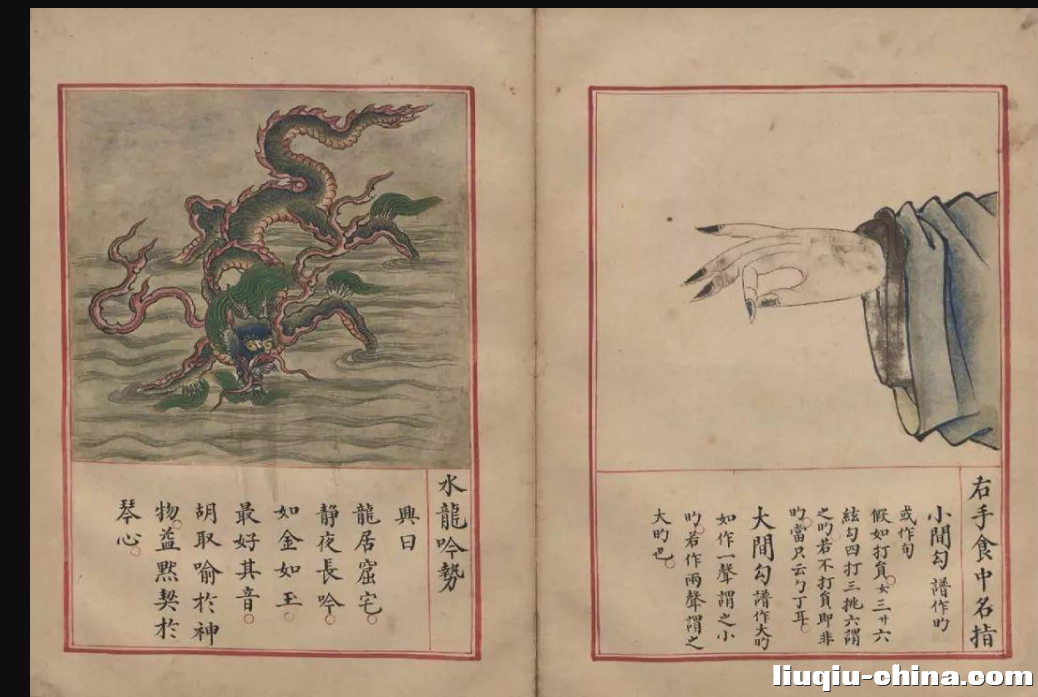 右手食中名指
小間勾 譜作旳
或作旬
假如打負。三廾六
絃勾四打三挑六謂
之旳。若不打負即非
旳。當只云勹丁耳。
大間勾 譜作大旳
如作一聲謂之小
旳。若作兩聲謂之
大旳也。
水龍吟勢
興曰
龍居窟宅。
靜夜長吟。
如金如玉。
最好其音。
胡取喻於神
物。盖默契於
琴心。
liuqiu-china.com